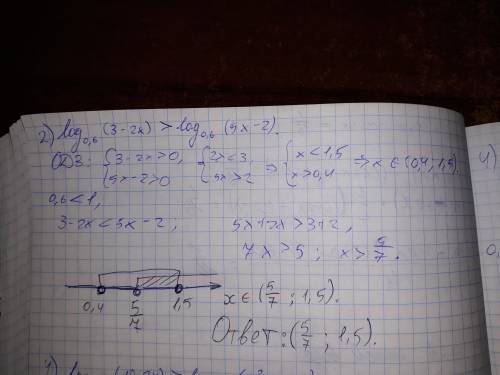 2) log₀,₆ (3-2x) > log₀,₆ (5x-2).
ОДЗ: { 3-2x>0, 5x-2>0 { 2x<3, 5x>2 ⇒ { x<1,5 x>0,4 ⇒ x ∈ (0,4; 1,5).
0,6<1,
3-2x<5x-2; 5x+2x>3+2,
7x>5; x>5/7.
0,4 5/7 1,5 x∈(5/7; 1,5).
Ответ: (5/7; 1,5).
4)